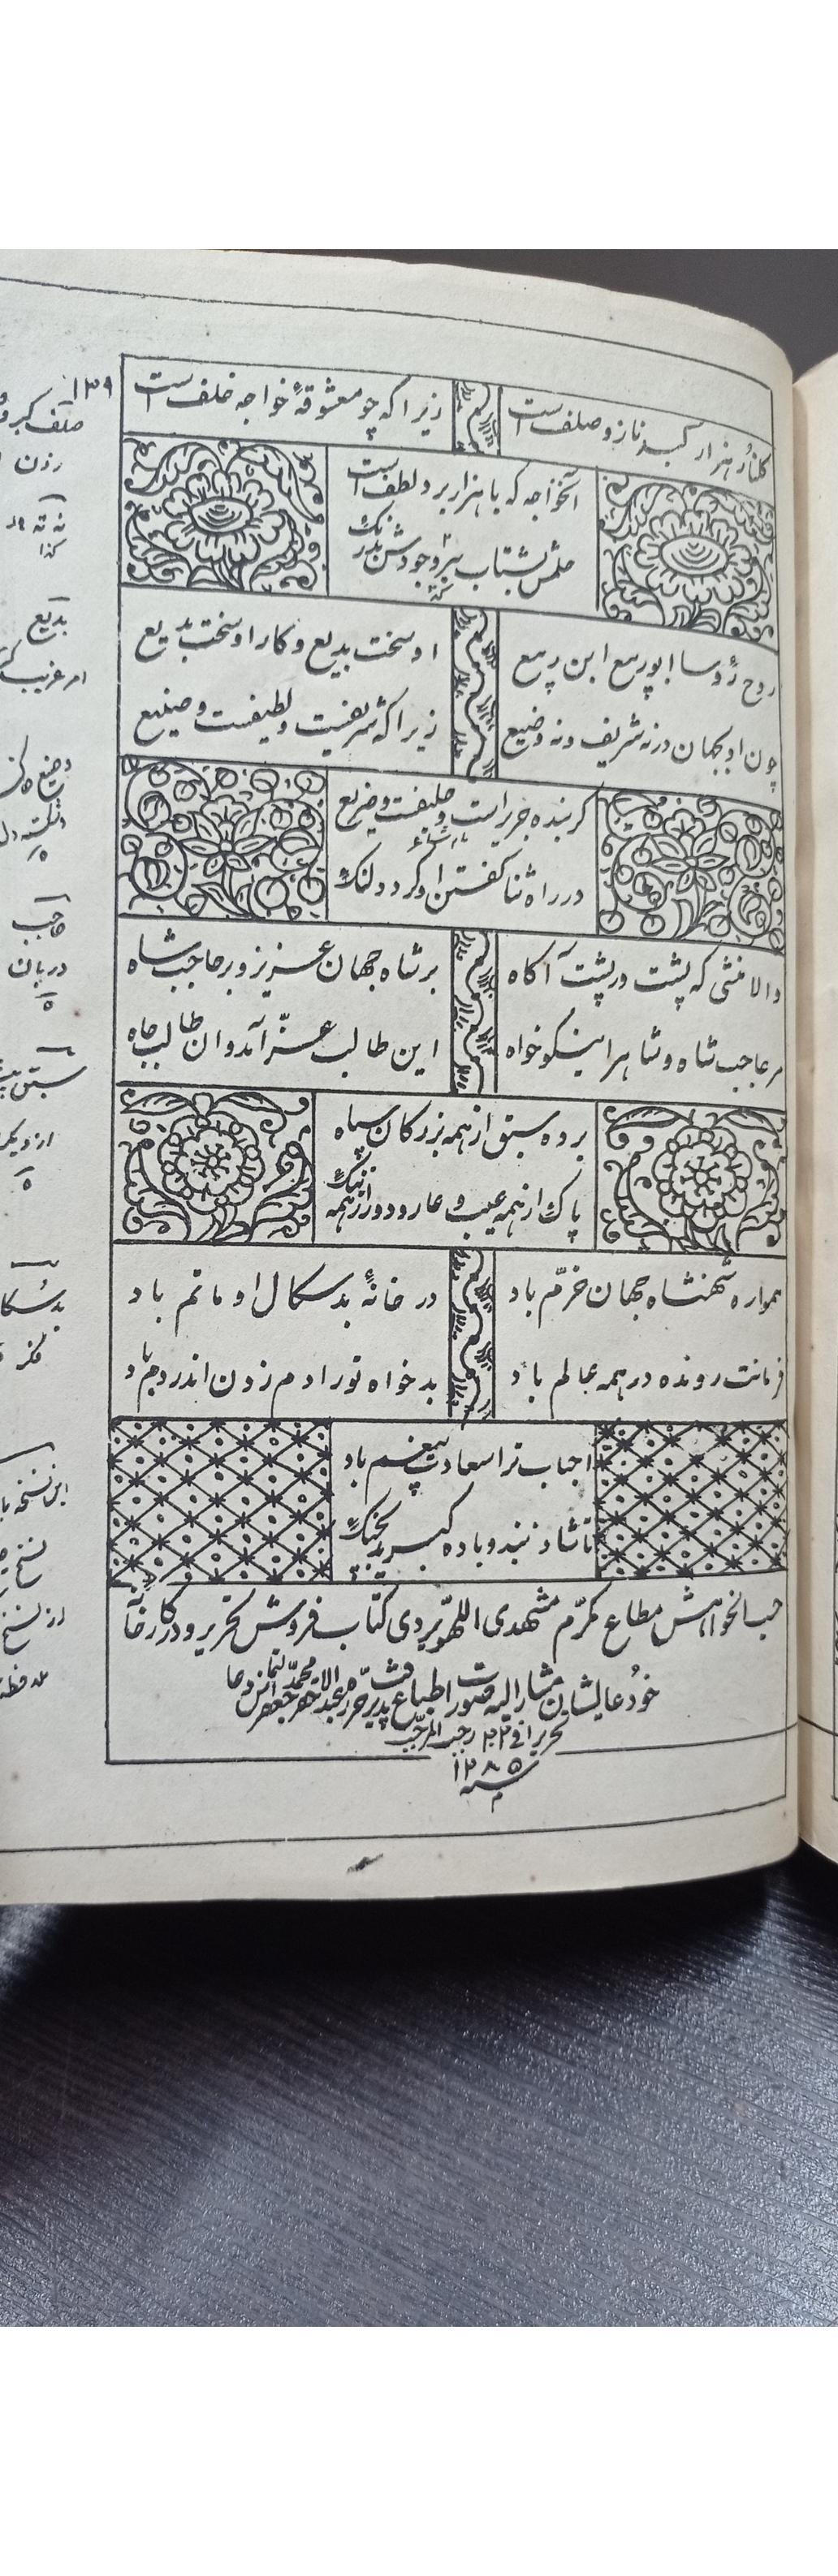 گلنار هزار گنبد ناز و صلف است زیراکه چو معشوقهٔ خواجه خلف است
آنخواجه که با هزار بر د لطف است
حلمش بشتاب نیز وجودش بدرنگ
روح رؤسا ابوربیع ابن ربیع او سخت بدیع و کار او سخت بدیع
چون او بجهان در نه شریف و نه وضیع زیراکه شریفیت و لطیفت و صنیع
گر بنده جریر است و ضریع
در راه ثنا گفتن او گردد لنگ
والا منشی که پشت در پشت آکاه بر شاه جهان عزیز و بر حاجب شاه
مر حاجب شاه و شاه را نیکوخواه این طالب عزّ آمد وان طالب جاه
برده سبق از همه بزرگان سپاه
پاک از همه عیب و عار و دور از همه ننگ
همواره شهنشاه جهان خرّم باد در خانهٔ بدسکال او ماتم باد
فرمانت رونده در همه عالم باد بدخواه تو را دم زدن اندر دم باد
احباب ترا سعادت بیغم باد
تا شاد زیند و باده گیرند بچنک
حسب الخواهش مطاع مکرّم مشهدی اللهویردی کتاب فروش تحریر و در کارخانه
خود عالیشان مشارالیه صورت انطباع پذیرفت حرّره عبد الاحقر محمّد جعفر
تحریرا فی ۲۲ رجب المرجّب
سنه ۱۲۸۵
۱۳۹
صلف
بدیع
وضیع
حاجب
دربان
سبق
فکر
این نسخه
نسخ
از نسخ